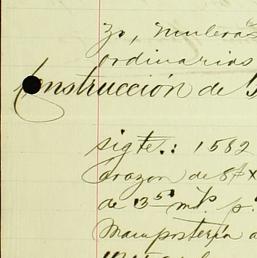 zo, muleras
ordinarios
Construcción de
sigte.: 1582
á razon de
de 13⁵⁰ m/p.
Mampostería